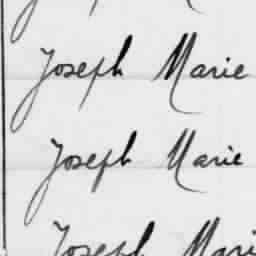 Joseph Marie
Joseph Marie
Joseph Mari